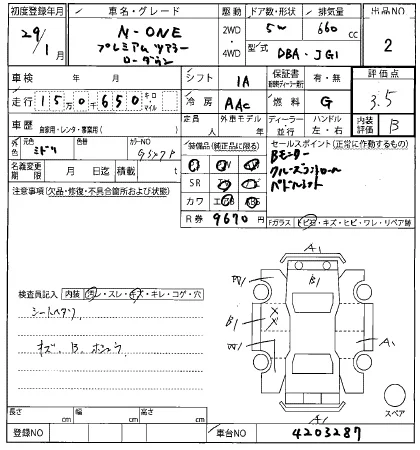 初度登録年月 車名・グレード 駆動 ドア数・形状 排気量 出品NO
29/1月 N-ONE 2WD・4WD 5W 660cc 2
プレミアム ツアラー 型式 DBA-JG1
ローダウン
車検 年 月 シフト IA 保証書 有・無 評価点
走行 15万0千650 キロ・マイル 冷房 AAC 燃料 G 3.5
車歴 自家用・レンタ・事業用( ) 定員 人 外車モデル 年 ディーラー 並行 ハンドル 左・右 内装評価 B
外色 元色 ミドリ 色替 カラーNO 装備品(純正品に限る) セールスポイント(正常に作動するもの)
Bモニター
クルーズコントロール
パドルシフト
名義変更期限 月 日迄 積載量 t SR
カワ エアB ABS
注意事項(欠品・修復・不具合箇所および状態) R券 9670円 Fガラス トビ石・キズ・ヒビ・ワレ・リペア跡
A1
B1
B1
A1
A1
検査員記入 内装 汚レ・スレ・キズ・キレ・コゲ・穴
シートヘタリ
キズ、B、ホシュウ
スペア
長さ cm 幅 cm 高さ cm
登録NO 車台NO 4203287